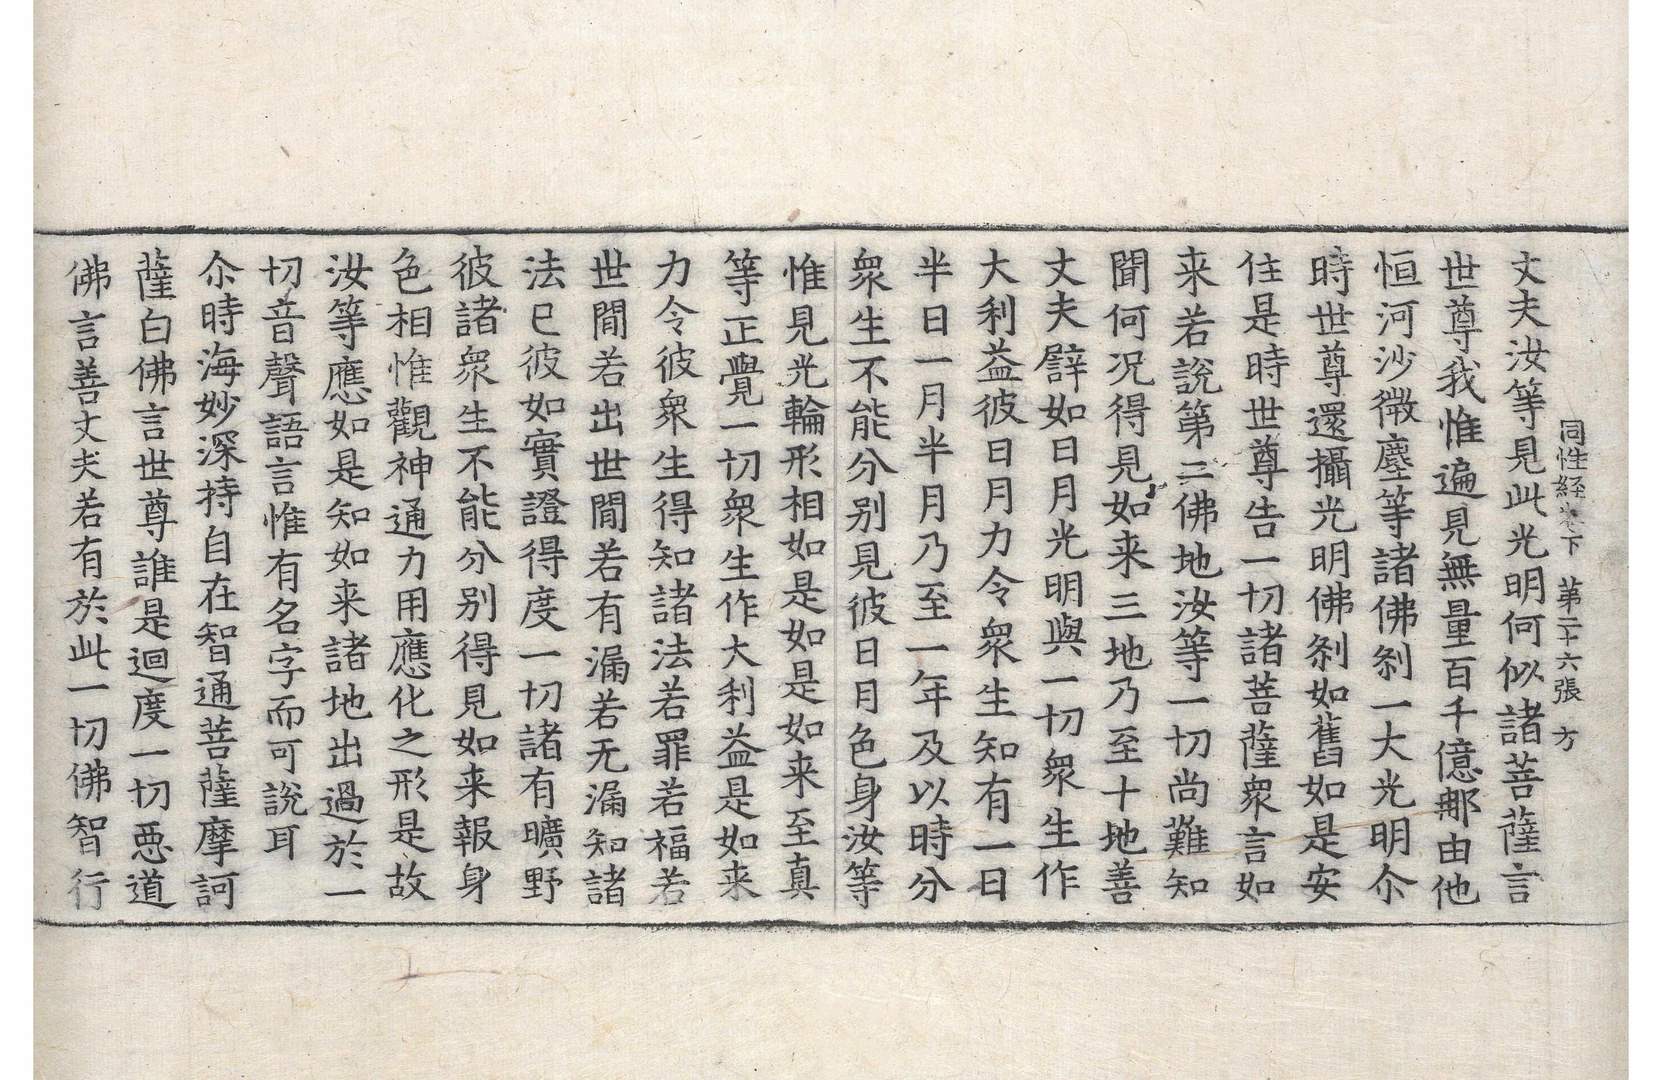 同性経卷下 第二十六張 方
丈夫汝等見此光明何似諸菩薩言
世尊我惟遍見無量百千億那由他
恒河沙微塵等諸佛刹一大光明尒
時世尊還攝光明佛刹如舊如是安
住是時世尊告一切諸菩薩衆言如
来若說第三佛地汝等一切尚難知
聞何况得見如来三地乃至十地善
丈夫譬如日月光明與一切衆生作
大利益彼日月力令衆生知有一日
半日一月半月乃至一年及以時分
衆生不能分別見彼日月色身汝等
惟見光輪形相如是如是如来至真
等正覺一切衆生作大利益是如来
力令彼衆生得知諸法若罪若福若
世間若出世間若有漏若无漏知諸
法已彼如實證得度一切諸有曠野
彼諸衆生不能分別得見如来報身
色相惟觀神通力用應化之形是故
汝等應如是知如来諸地出過於一
切音聲語言惟有名字而可說耳
尒時海妙深持自在智通菩薩摩訶
薩白佛言世尊誰是迴度一切悪道
佛言善丈夫若有於此一切佛智行